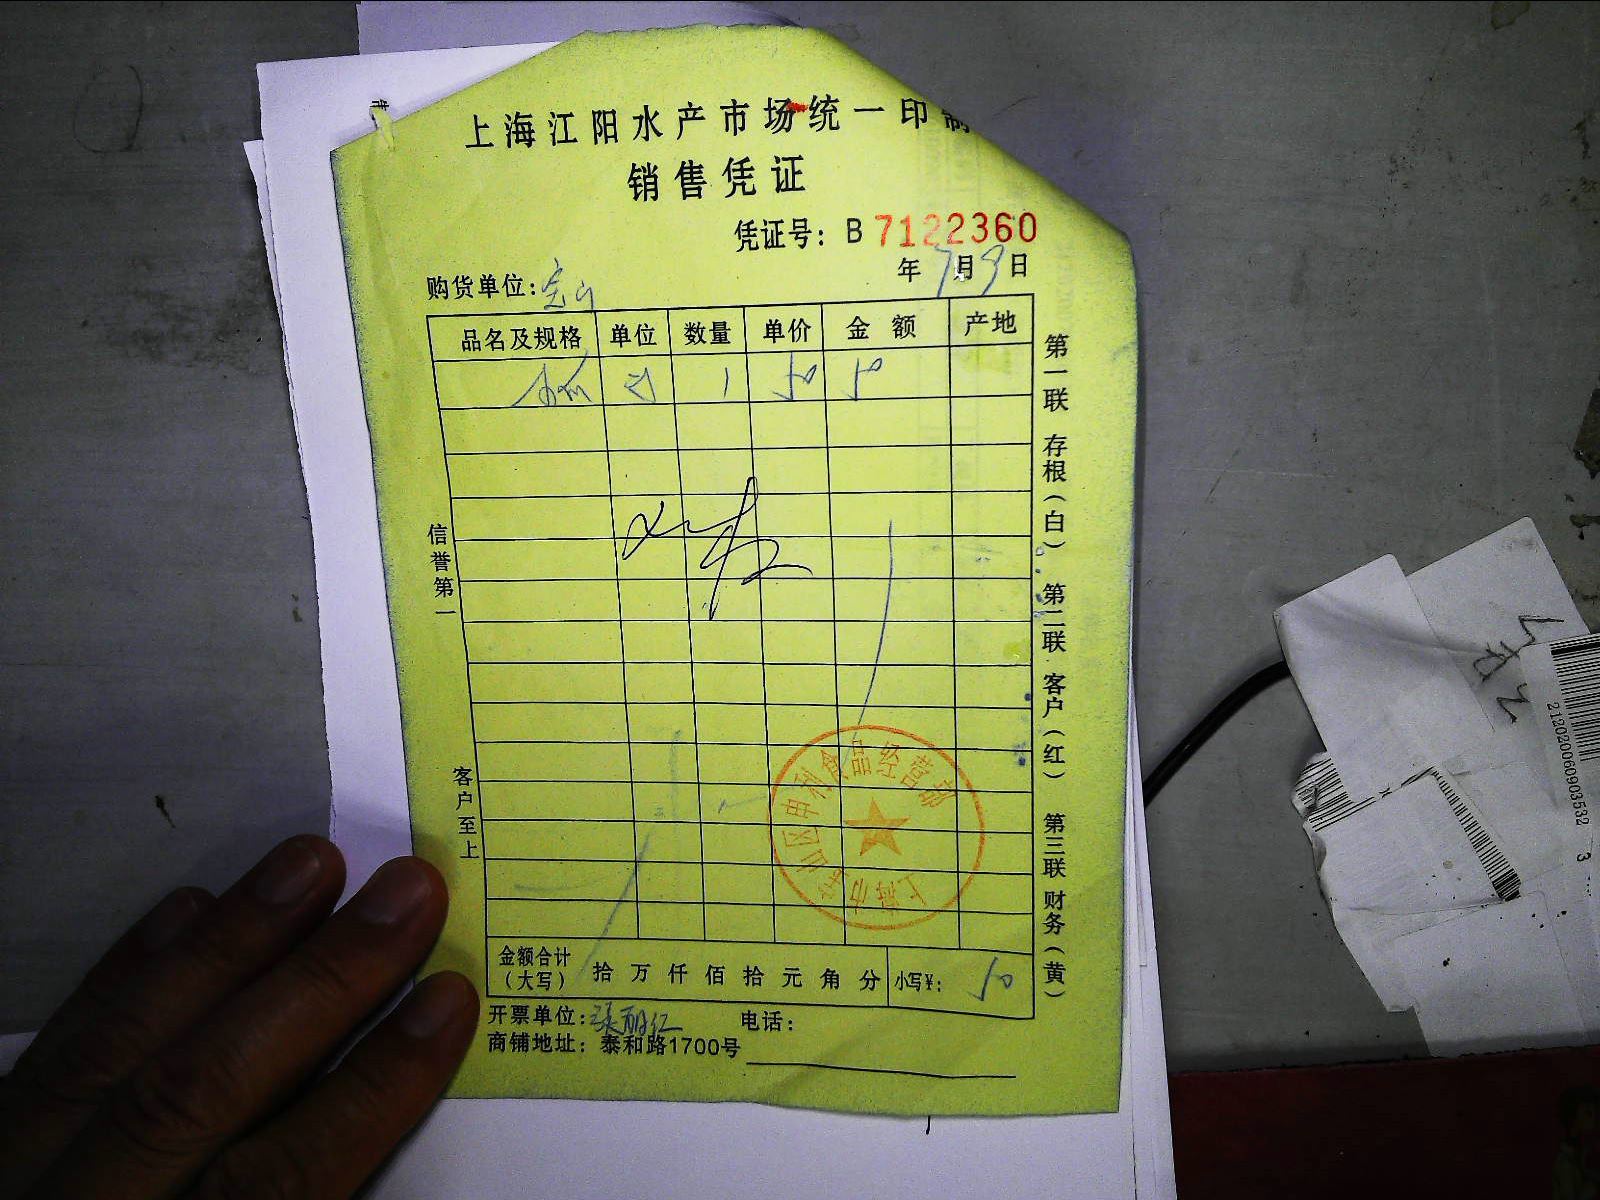 上海江阳水产市场统一印制
销售凭证
凭证号：B 7122360
年 7月9日
购货单位：宝山
品名及规格 单位 数量 单价 金额 产地
1 50 50
信誉第一
客户至上
第一联 存根（白） 第二联 客户（红） 第三联 财务（黄）
上海市宝山区申利食品经营部
金额合计（大写） 拾 万 仟 佰 拾 元 角 分 小写¥： 50
开票单位：张丽红 电话：
商铺地址：泰和路1700号
212020060903532 3